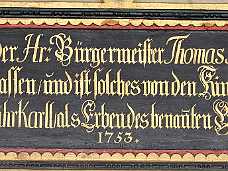 der Hr: Bürgermeister Thomas
assen/ und ist solches von den
als Erben des benanten
1753.